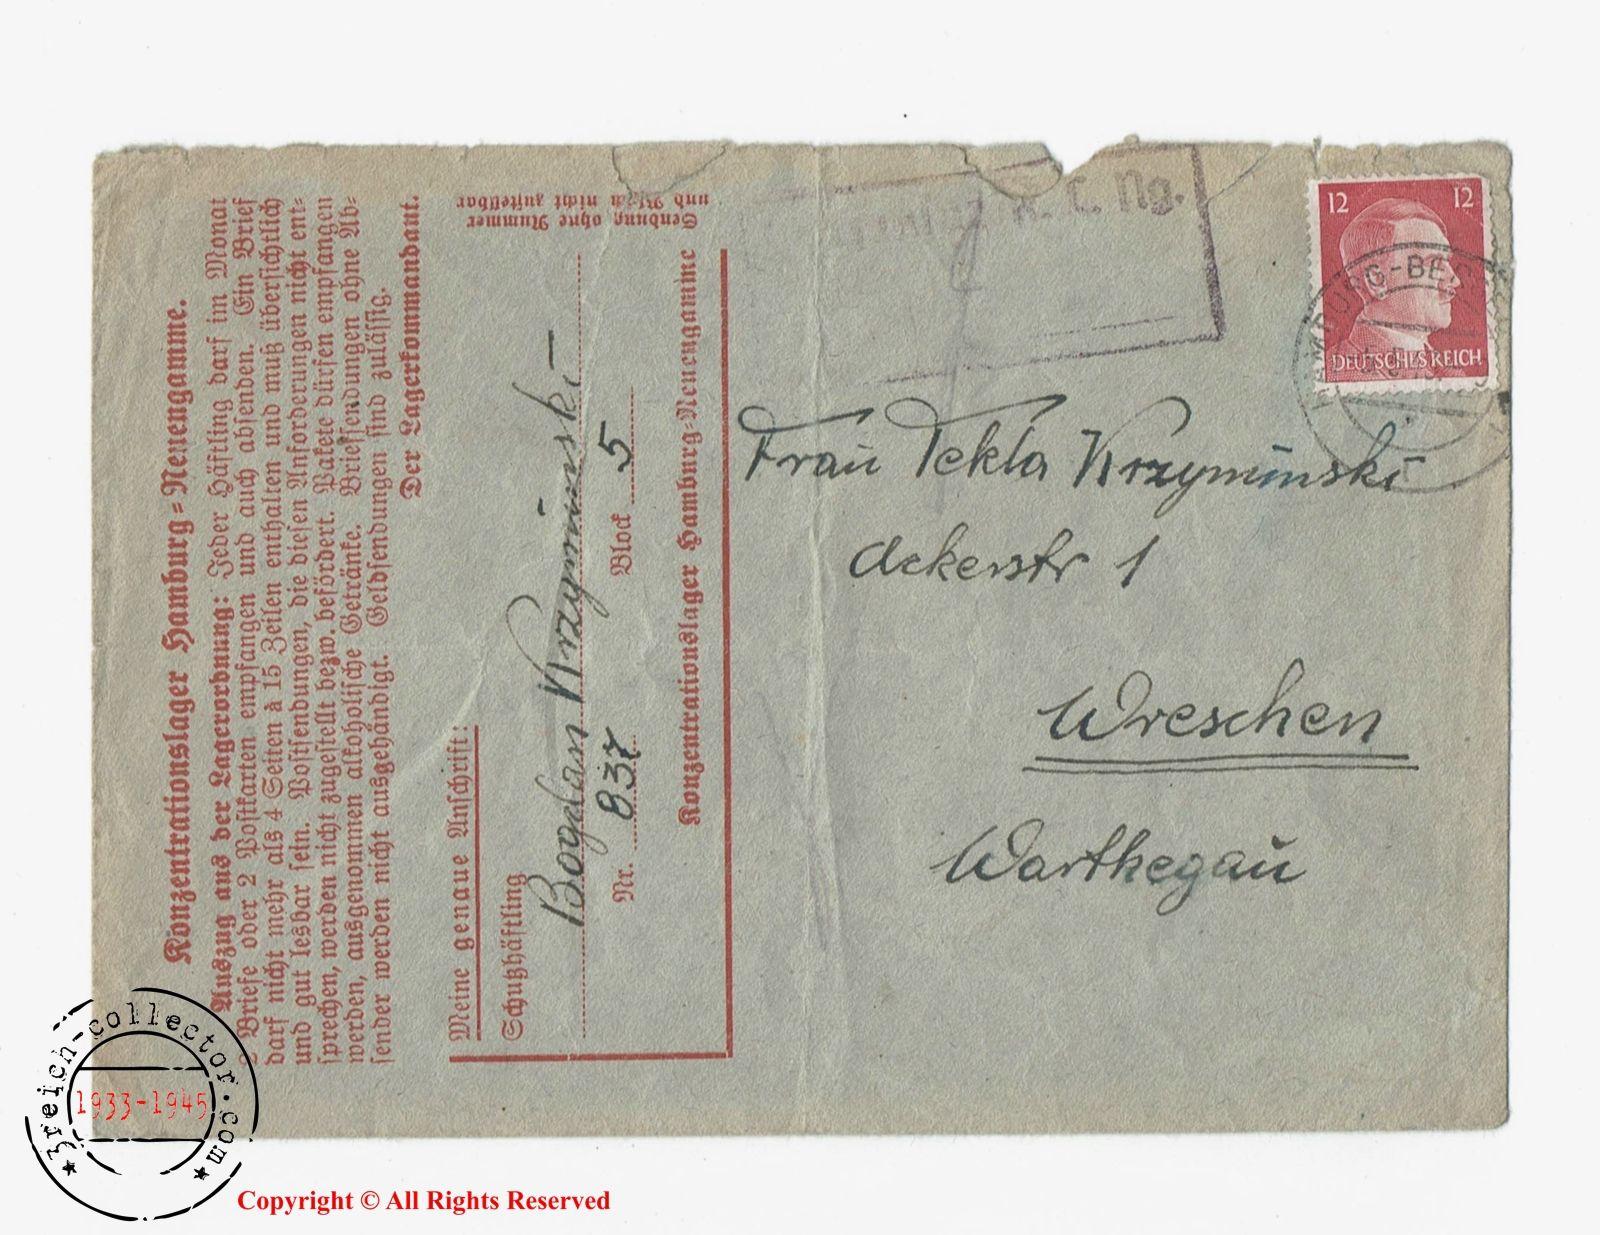 Konzentrationslager Hamburg=Neuengamme.
Auszug aus der Lagerordnung: Jeder Häftling darf im Monat
2 Briefe oder 2 Postkarten empfangen und auch absenden. Ein Brief
darf nicht mehr als 4 Seiten à 15 Zeilen enthalten und muß übersichtlich
und gut lesbar sein. Postsendungen, die diesen Anforderungen nicht ent-
sprechen, werden nicht zugestellt bezw. befördert. Pakete dürfen empfangen
werden, ausgenommen alkoholische Getränke. Briefsendungen ohne Ab-
sender werden nicht ausgehändigt. Geldsendungen sind zulässig.
Der Lagerkommandant.
Meine genaue Anschrift:
Schutzhäftling
Bogdan Krzyminski
Nr. 837 Block 5
Konzentrationslager Hamburg=Neuengamme
Sendung ohne Nummer
und Block nicht zustellbar
K. L. Ng.
12 12
DEUTSCHES REICH
Frau Tekla Krzyminski
Ackerstr 1
Wreschen
Warthegau
3reich-collector.com
1933-1945
Copyright © All Rights Reserved